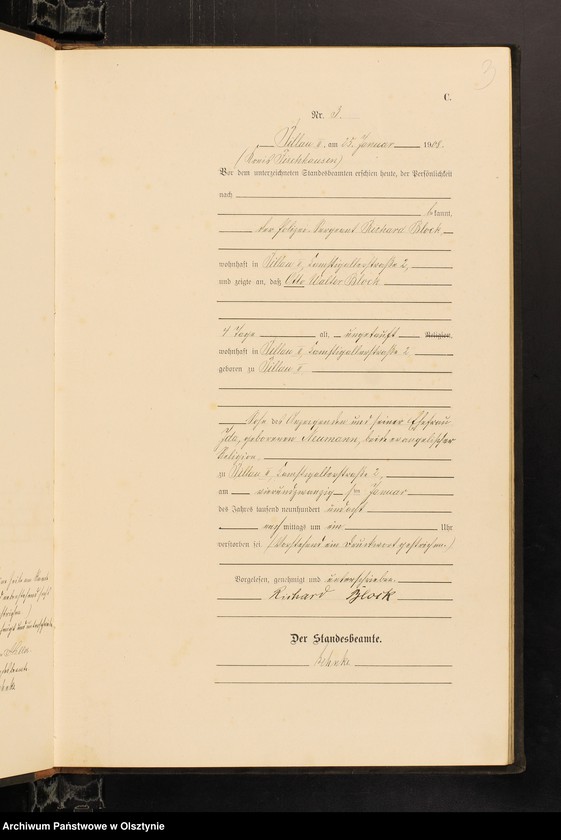 3
C.
Nr. 3.
Pillau II, am 25. Januar 1908.
Vor dem unterzeichneten Standesbeamten erschien heute, der Persönlichkeit
nach
bekannt,
der Polizei-Sergeant Richard Block,
wohnhaft in Pillau II, 2,
und zeigte an, daß Otto Walter Block
7 Tage alt, ungetauft Religion,
wohnhaft in Pillau II, 2,
geboren zu Pillau II
Sohn des Anzeigenden und seiner Ehefrau
Ida, geborenen Neumann, beide evangelischer
Religion,
zu Pillau II, 2,
am vierundzwanzigsten Januar
des Jahres tausend neunhundert und acht
nachmittags um ein Uhr
verstorben sei. (Vorstehend ein Druckwort gestrichen.)
Vorgelesen, genehmigt und unterschrieben.
Richard Block
Der Standesbeamte.
Archiwum Państwowe w Olsztynie